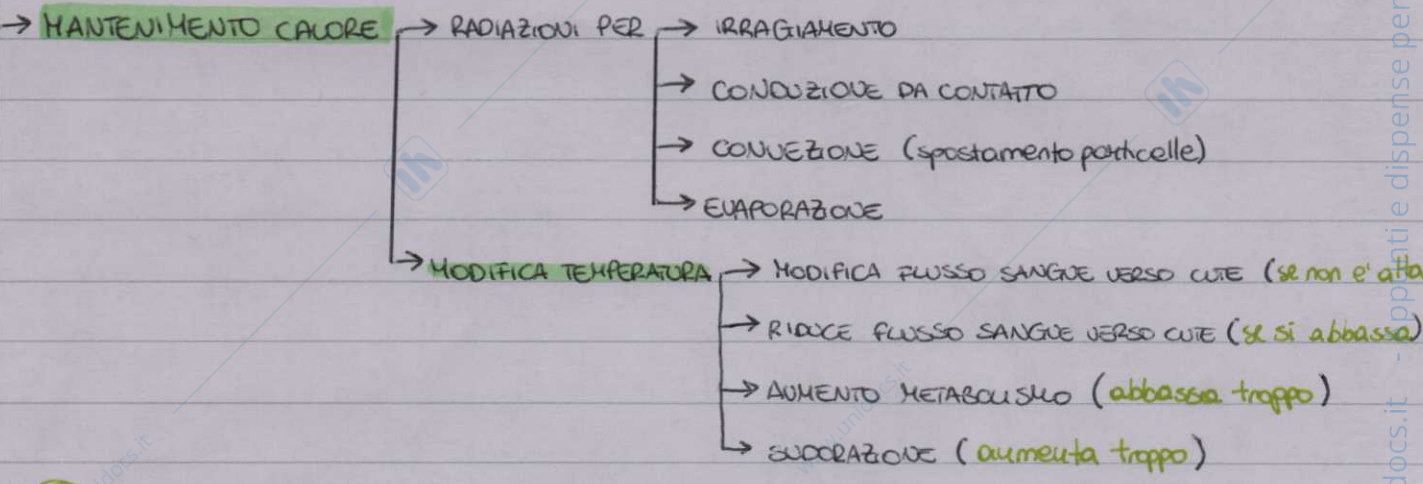 → MANTENIMENTO CALORE → RADIAZIONI PER → IRRAGIAMENTO
→ CONDUZIONE DA CONTATTO
→ CONVEZIONE (spostamento particelle)
→ EVAPORAZIONE
→ MODIFICA TEMPERATURA → MODIFICA FLUSSO SANGUE VERSO CUTE (se non e'
→ RIDUCE FLUSSO SANGUE VERSO CUTE (se si abbassa)
→ AUMENTO METABOLISMO (abbassa troppo)
→ SUDORAZIONE (aumenta troppo)
docs.it
www.unidocs.it
docs.it - Appunti e dispense per